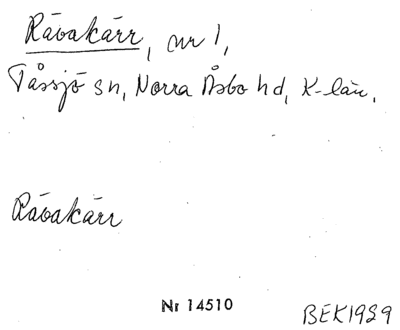 Rävakärr, nr 1,
Tåssjö sn, Norra Åsbo hd, K-län.
Rävakärr
Nr 14510
BEK1989